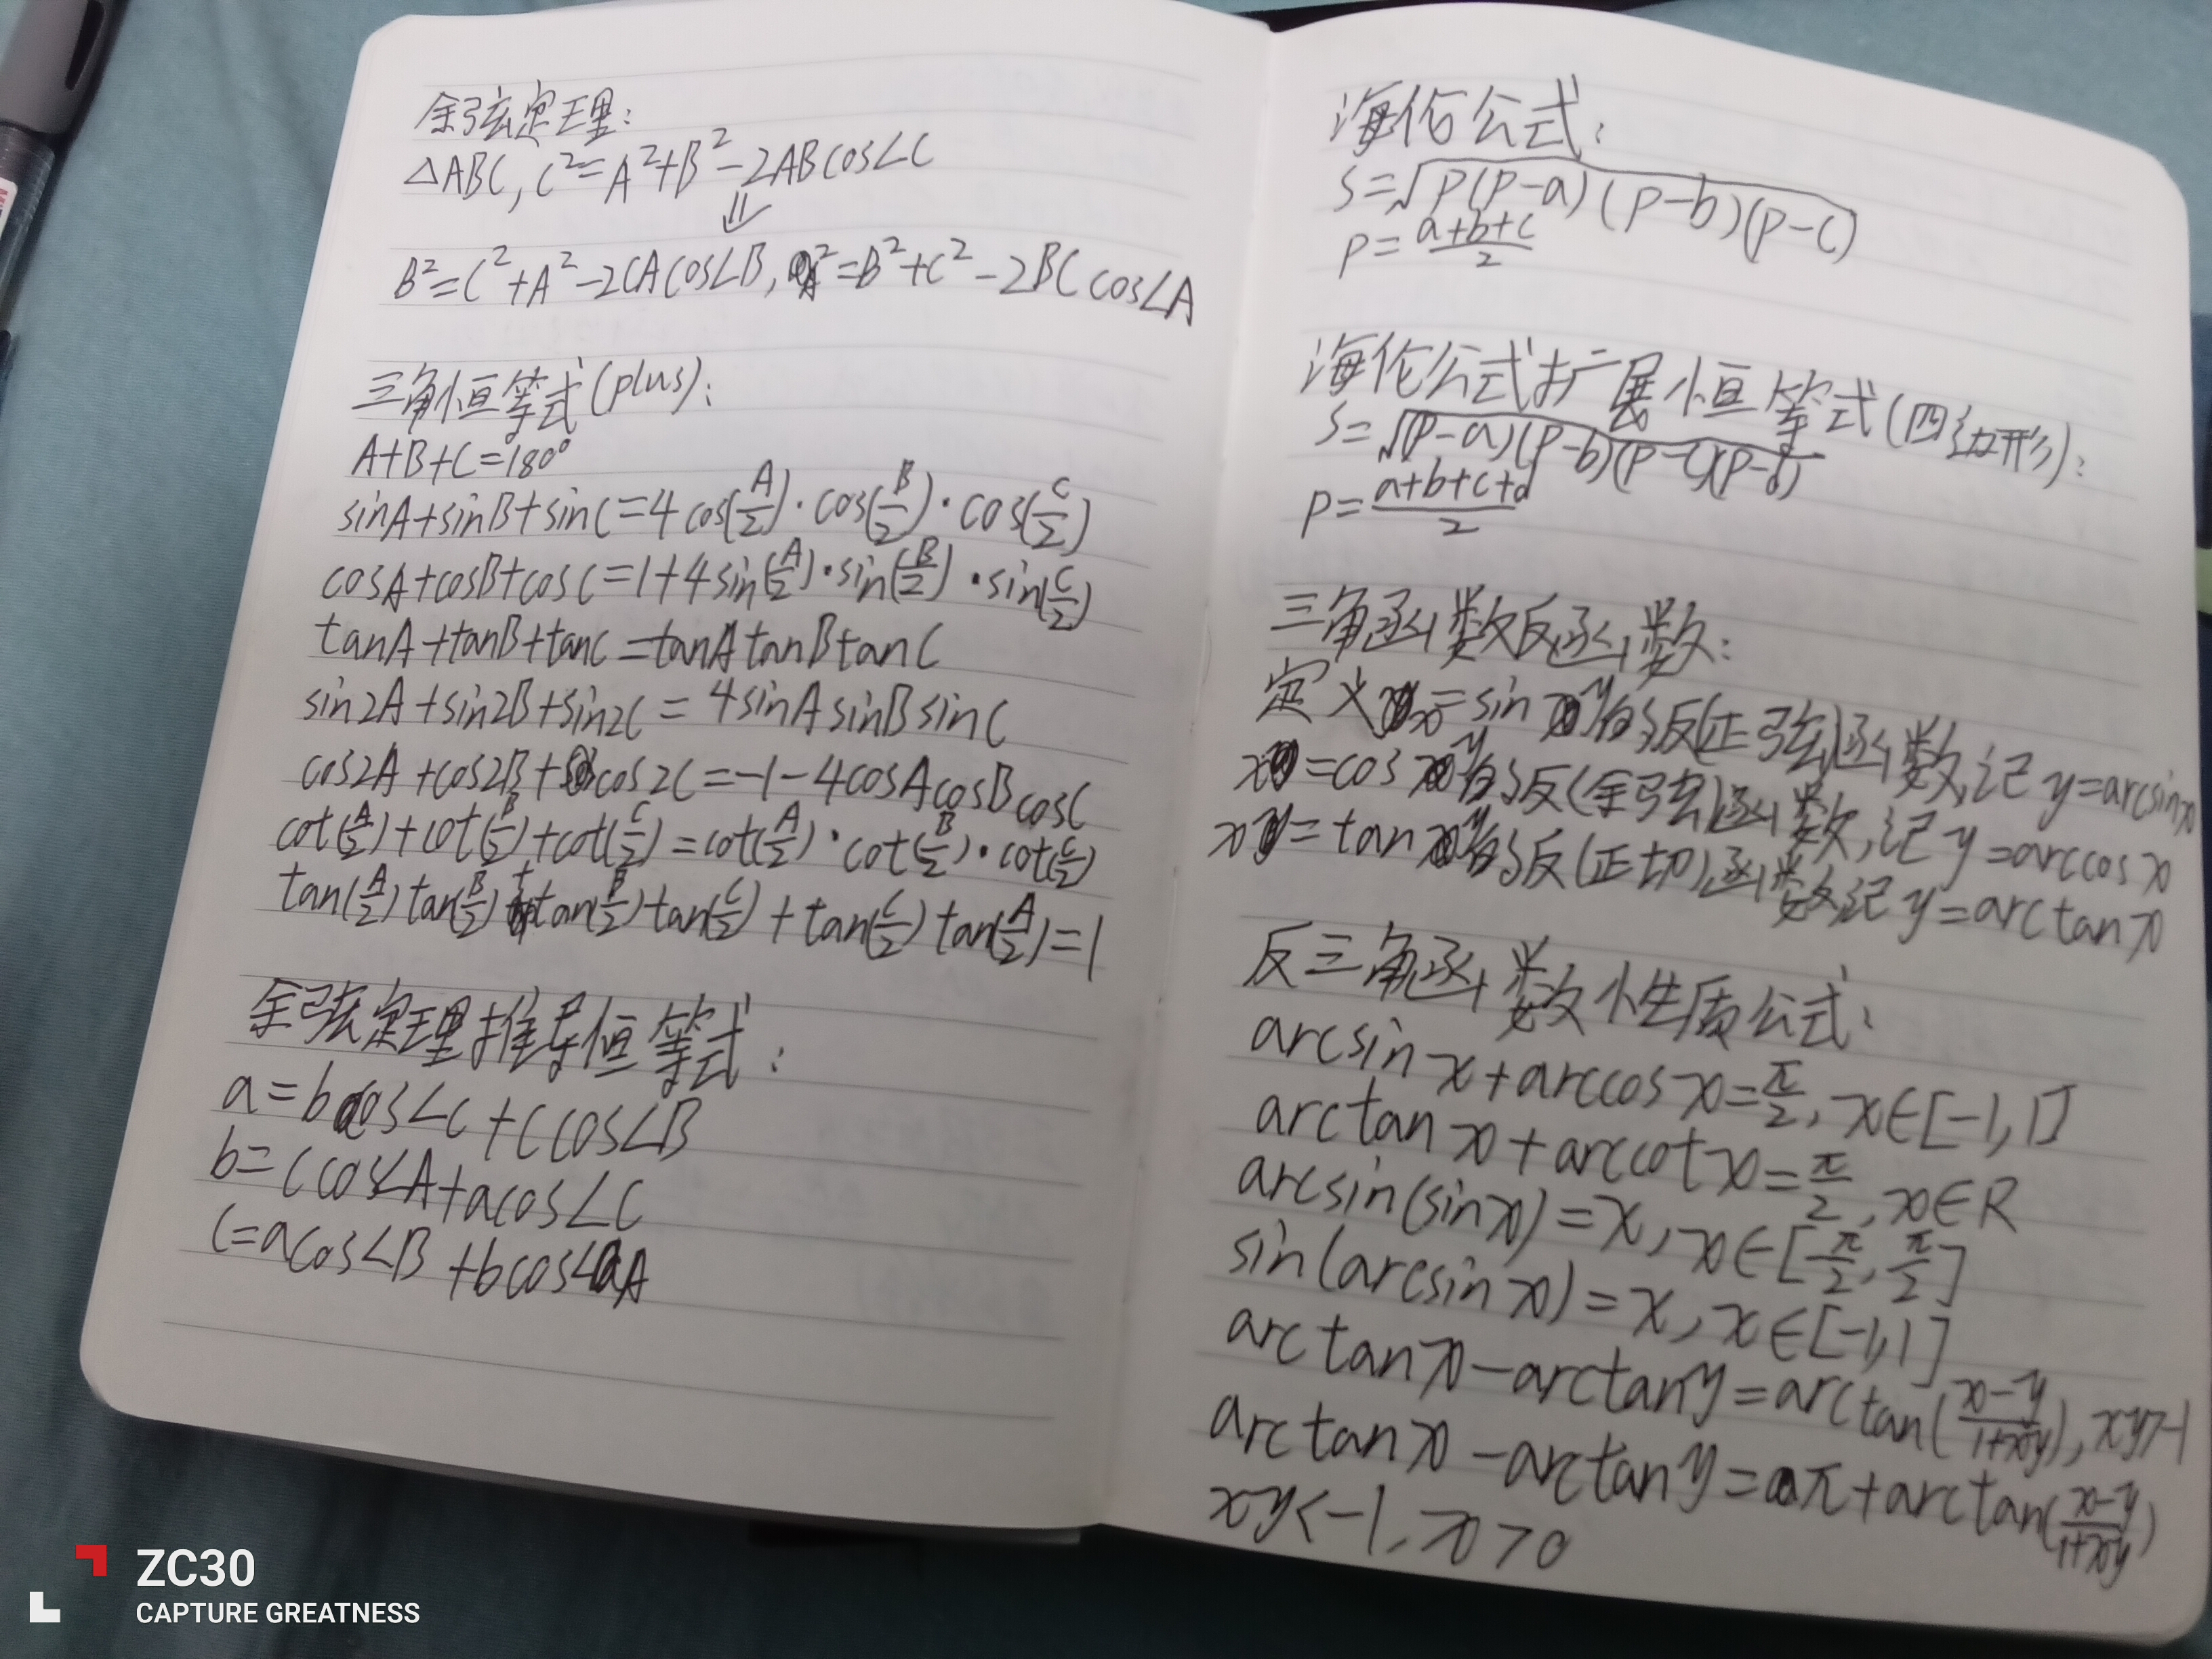 余弦定理:
△ABC, C²=A²+B²-2ABcos∠C
⇓
B²=C²+A²-2CAcos∠B, A²=B²+C²-2BCcos∠A
三角恒等式(plus):
A+B+C=180°
sinA+sinB+sinC=4cos(A/2)·cos(B/2)·cos(C/2)
cosA+cosB+cosC=1+4sin(A/2)·sin(B/2)·sin(C/2)
tanA+tanB+tanC=tanAtanBtanC
sin2A+sin2B+sin2C=4sinAsinBsinC
cos2A+cos2B+cos2C=-1-4cosAcosBcosC
cot(A/2)+cot(B/2)+cot(C/2)=cot(A/2)·cot(B/2)·cot(C/2)
tan(A/2)tan(B/2)+tan(B/2)tan(C/2)+tan(C/2)tan(A/2)=1
余弦定理推导恒等式:
a=bcos∠C+ccos∠B
b=ccos∠A+acos∠C
c=acos∠B+bcos∠A
海伦公式:
S=√p(p-a)(p-b)(p-c)
p=a+b+c/2
海伦公式扩展恒等式(四边形):
S=√(p-a)(p-b)(p-c)(p-d)
p=a+b+c+d/2
三角函数反函数:
定义x=sin y的反(正弦)函数,记y=arcsinx
x=cos y的反(余弦)函数,记y=arccosx
x=tan y的反(正切)函数记y=arctanx
反三角函数性质公式:
arcsinx+arccosx=π/2, x∈[-1,1]
arctanx+arccotx=π/2, x∈R
arcsin(sinx)=x, x∈[-π/2, π/2]
sin(arcsinx)=x, x∈[-1,1]
arctanx-arctany=arctan(x-y/1+xy), xy>-1
arctanx-arctany=π+arctan(x-y/1+xy)
xy<-1, x>0
ZC30
CAPTURE GREATNESS